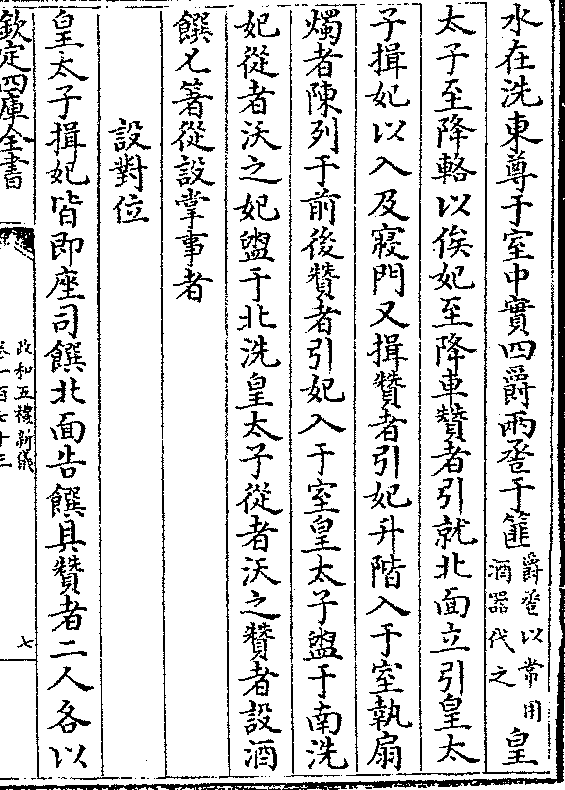 水在洗東尊于室中實四爵兩卺于篚爵卺以常用酒器代之皇
太子至降輅以俟妃至降車贊者引就北面立引皇太
子揖妃以入及寢門又揖贊者引妃升階入于室執扇
燭者陳列于前後贊者引妃入于室皇太子盥于南洗
妃從者沃之妃盥于北洗皇太子從者沃之贊者設酒
饌乂箸從設掌事者
設對位
皇太子揖妃皆即座司饌北面告饌具贊者二人各以
欽定四庫全書
政和五禮新儀
卷一百七十三
七